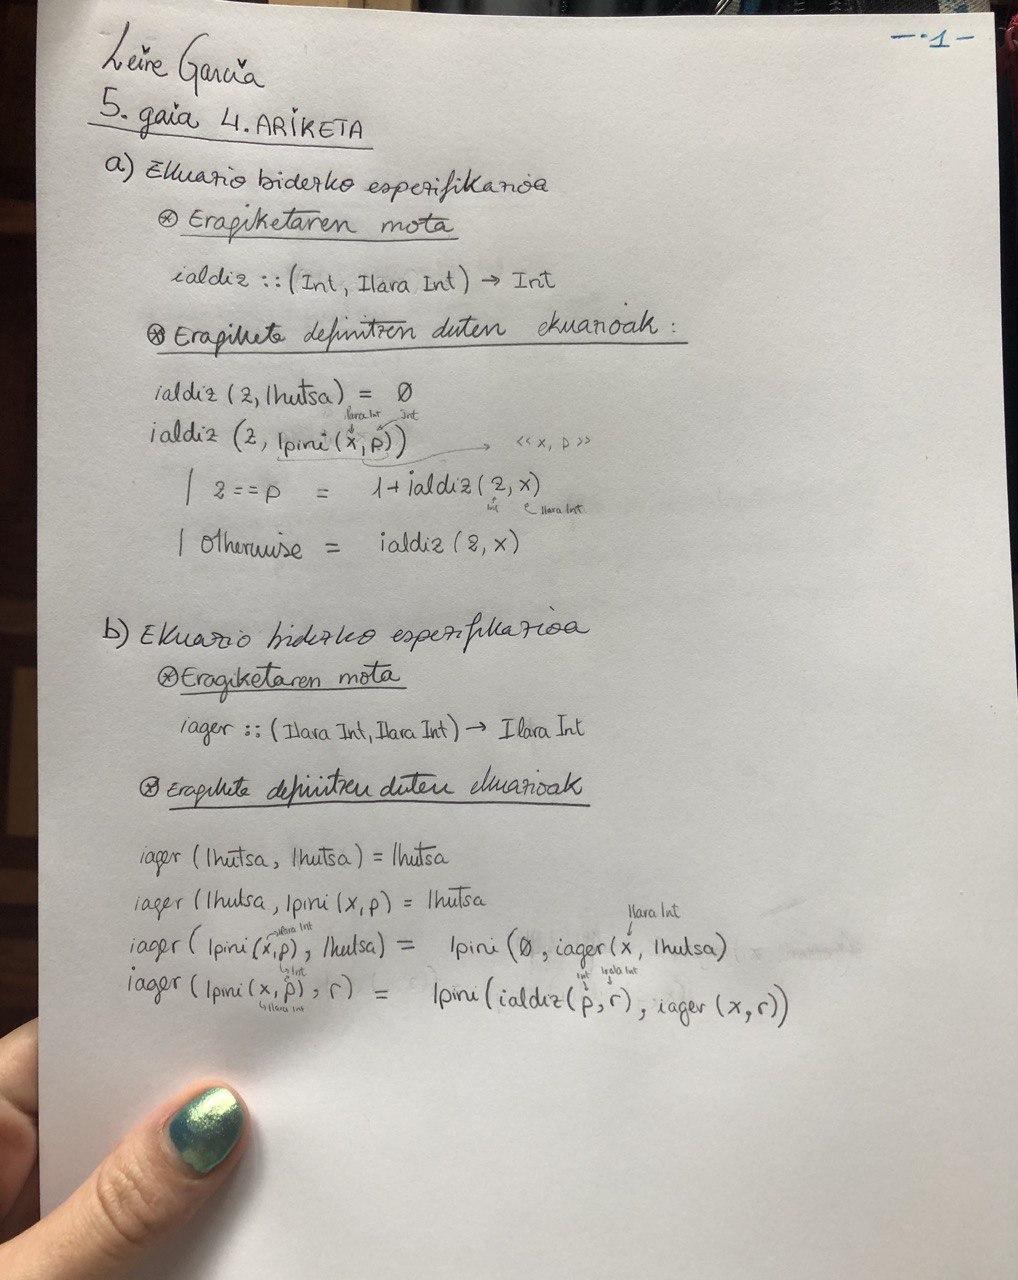 -·1-
Leire Garcia
5. gaia 4. ARIKETA
a) Ekuazio bidezko espezifikazioa
⊛ Eragiketaren mota
ialdiz :: (Int, Ilara Int) → Int
⊛ Eragiketa definitzen duten ekuazioak :
ialdiz (z, Ihutsa) = 0
Ilara Int Int
ialdiz (z, Ipini (x, p)) → << x, p >>
| z == p = 1 + ialdiz (z, x)
Int Ilara Int
| otherwise = ialdiz (z, x)
b) Ekuazio bidezko espezifikazioa
⊛ Eragiketaren mota
iager :: (Ilara Int, Ilara Int) → Ilara Int
⊛ Eragiketa definitzen duten ekuazioak
iager (Ihutsa, Ihutsa) = Ihutsa
iager (Ihutsa, Ipini (x, p) = Ihutsa
Ilara Int Ilara Int
iager ( Ipini (x, p), Ihutsa) = Ipini (0, iager (x, Ihutsa)
Int Int Ilara Int
iager ( Ipini (x, p), r) = Ipini ( ialdiz (p, r), iager (x, r))
Ilara Int